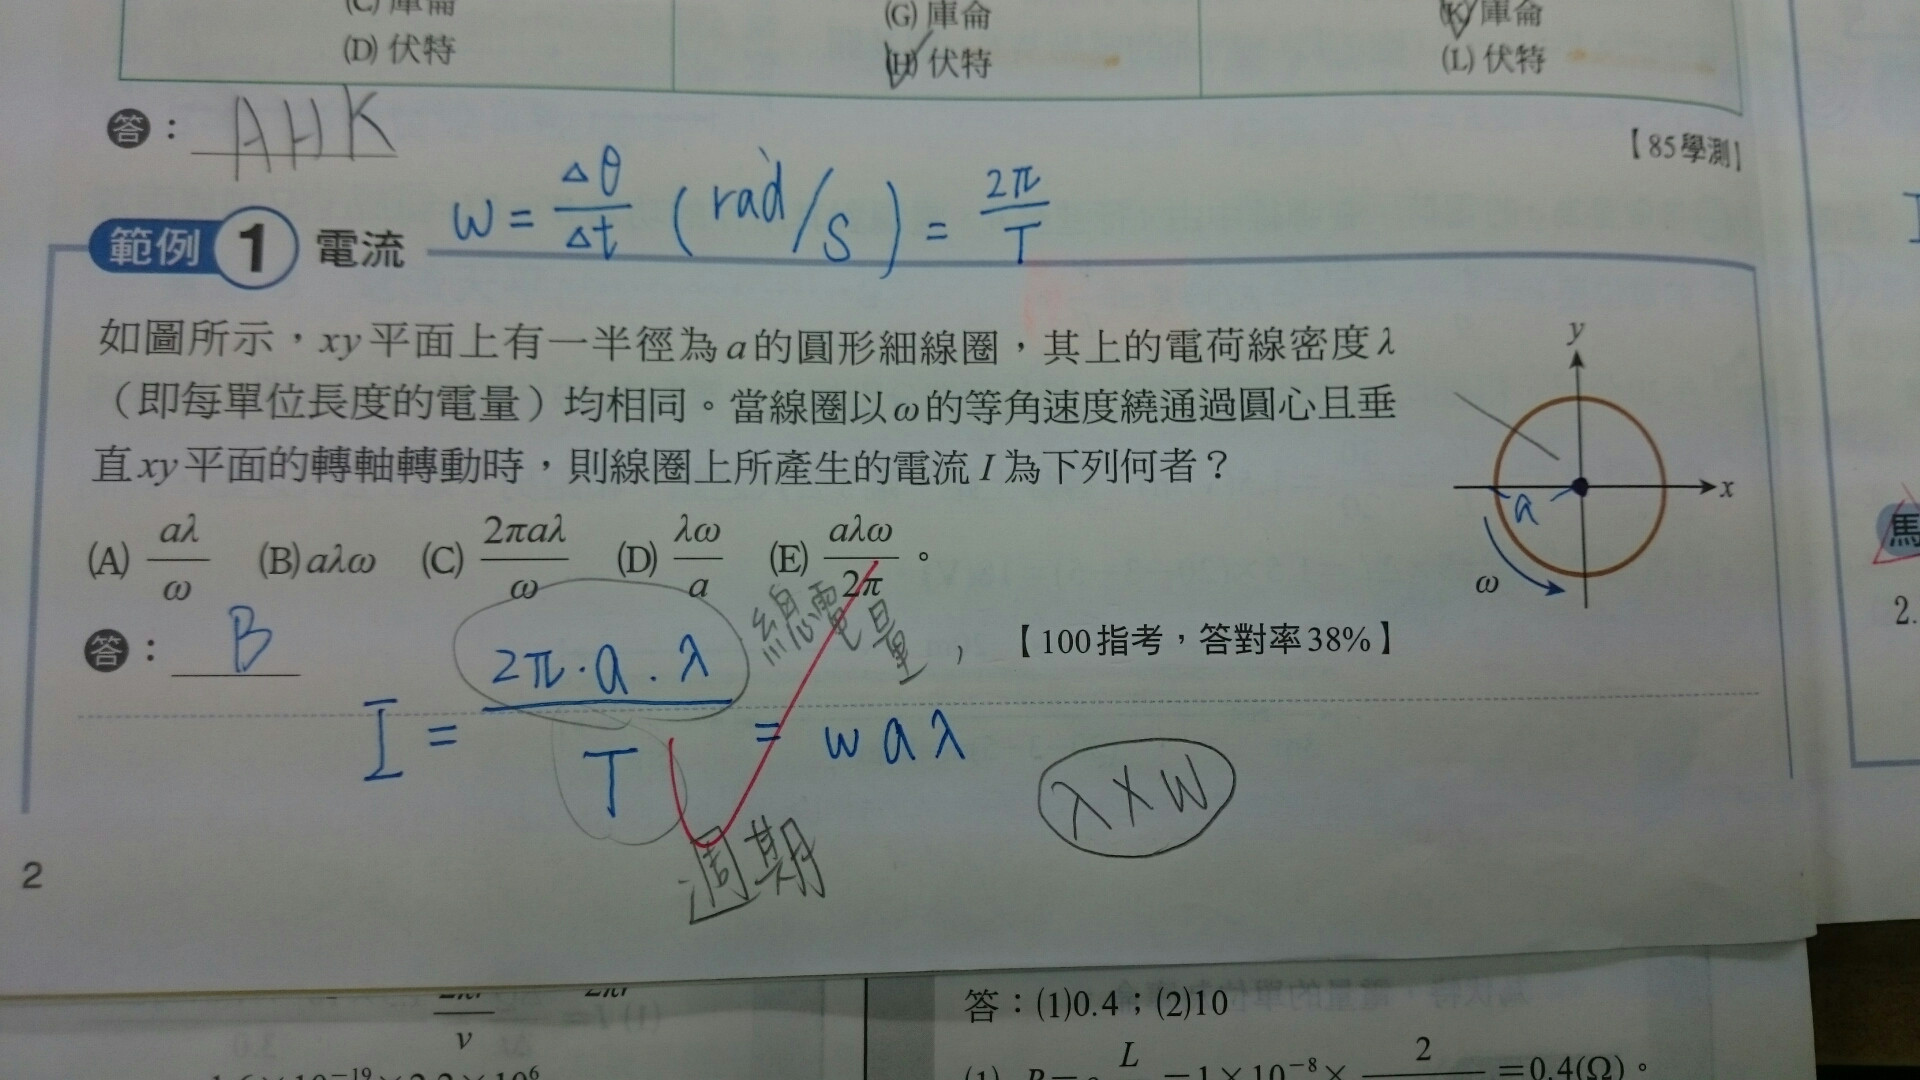 (C) 庫侖
(G) 庫侖
(K) 庫侖
(D) 伏特
(H) 伏特
(L) 伏特
答：AHK
【85學測】
範例 1 電流
w = Δθ/Δt (rad/s) = 2π/T
如圖所示，xy平面上有一半徑為a的圓形細線圈，其上的電荷線密度λ
（即每單位長度的電量）均相同。當線圈以ω的等角速度繞通過圓心且垂
直xy平面的轉軸轉動時，則線圈上所產生的電流 I 為下列何者？
(A) aλ/ω (B) aλω (C) 2πaλ/ω (D) λω/a (E) aλω/2π 。
y
x
a
ω
答：B
【100指考，答對率38%】
I = 2π·a·λ/T = w a λ
總電量
週期
λ×w
2
馬
2.
v
答：(1)0.4；(2)10
L
=1×10⁻⁸× 2
=0.4(Ω)。